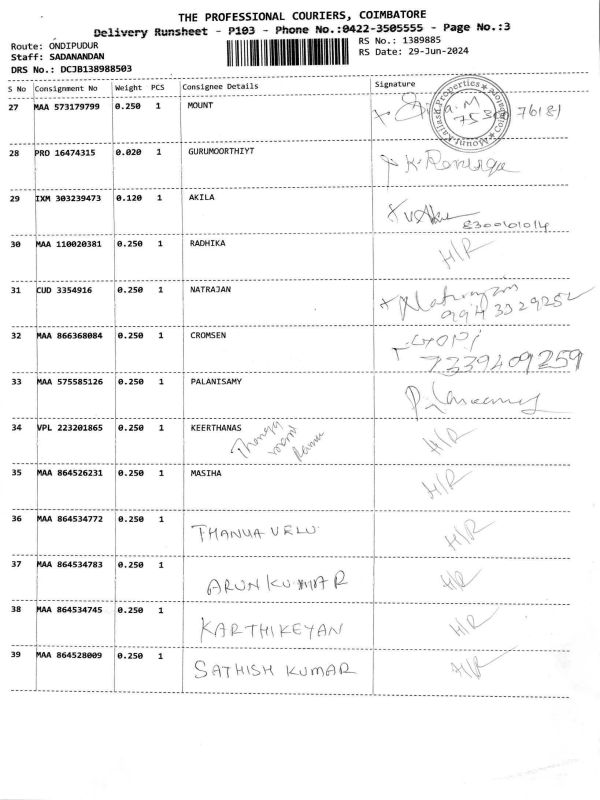 THE PROFESSIONAL COURIERS, COIMBATORE
Delivery Runsheet - P103 - Phone No.:0422-3505555 - Page No.:3
Route: ONDIPUDUR
RS No.: 1389885
Staff: SADANANDAN
RS Date: 29-Jun-2024
DRS No.: DCJB138988503
S No Consignment No Weight PCS Consignee Details Signature
27 MAA 573179799 0.250 1 MOUNT
Kailash Properties Mount Coimbatore
28 PRO 16474315 0.020 1 GURUMOORTHIYT
29 IXM 303239473 0.120 1 AKILA
30 MAA 110020381 0.250 1 RADHIKA H/R
31 CUD 3354916 0.250 1 NATRAJAN Natrajan
9943329252
32 MAA 866368084 0.250 1 CROMSEN GOPI
7339409259
33 MAA 575585126 0.250 1 PALANISAMY
34 VPL 223201865 0.250 1 KEERTHANAS H/R
35 MAA 864526231 0.250 1 MASIHA H/R
36 MAA 864534772 0.250 1 THANUA VELU H/R
37 MAA 864534783 0.250 1 ARUN KUMAR H/R
38 MAA 864534745 0.250 1 KARTHIKEYAN H/R
39 MAA 864528009 0.250 1 SATHISH KUMAR H/R